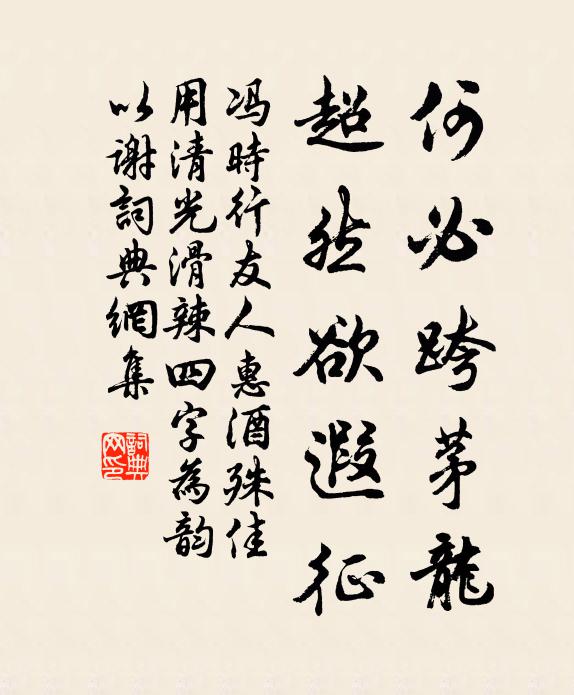 何必跨茅龍
超然欲遐征
冯時行友人惠酒殊佳
用清光滑辣四字為韵
以谢詞典網集
詞典網印